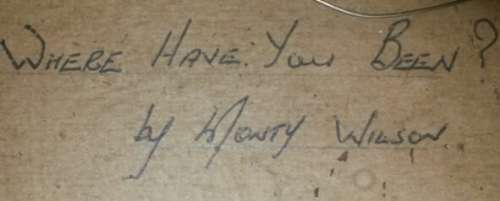 WHERE HAVE YOU BEEN?
by MONTY WILSON